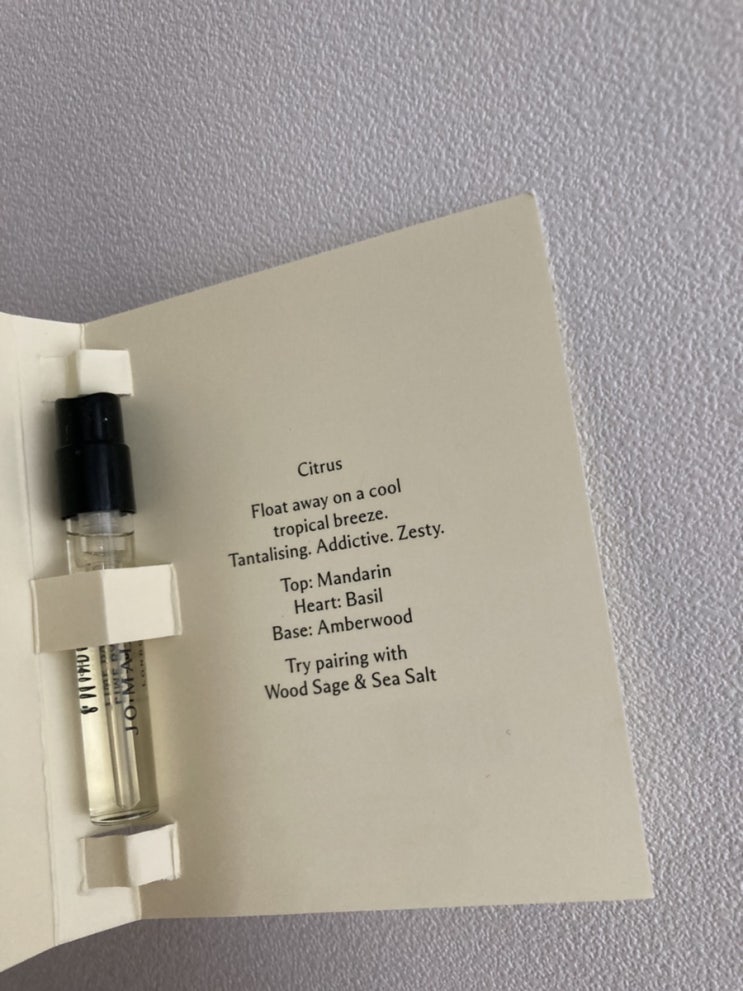 Citrus
Float away on a cool
tropical breeze.
Tantalising. Addictive. Zesty.
Top: Mandarin
Heart: Basil
Base: Amberwood
Try pairing with
Wood Sage & Sea Salt
JO MA